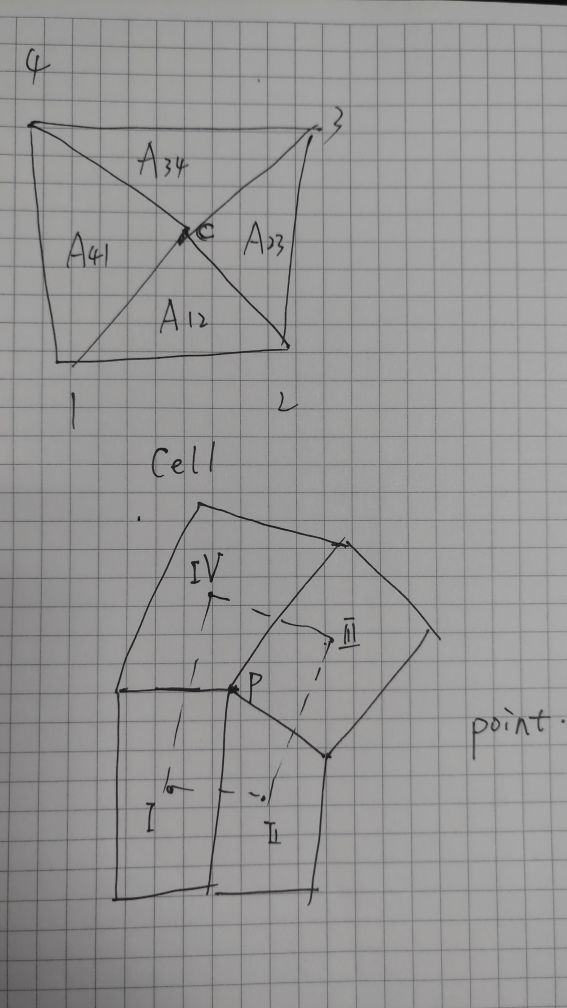 4
3
A34
C
A41
A23
A12
1
2
Cell
IV
III
P
point.
I
II